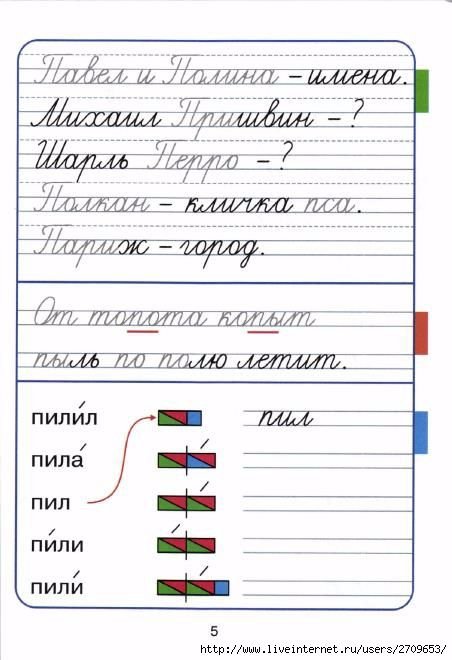 Павел и Полина – имена.
Михаил Пришвин – ?
Шарль Перро – ?
Полкан – кличка пса.
Париж – город.
От топота копыт
пыль по полю летит.
пили́л
пил
пила́
пил
пи́ли
пили́
5
http://www.liveinternet.ru/users/2709653/